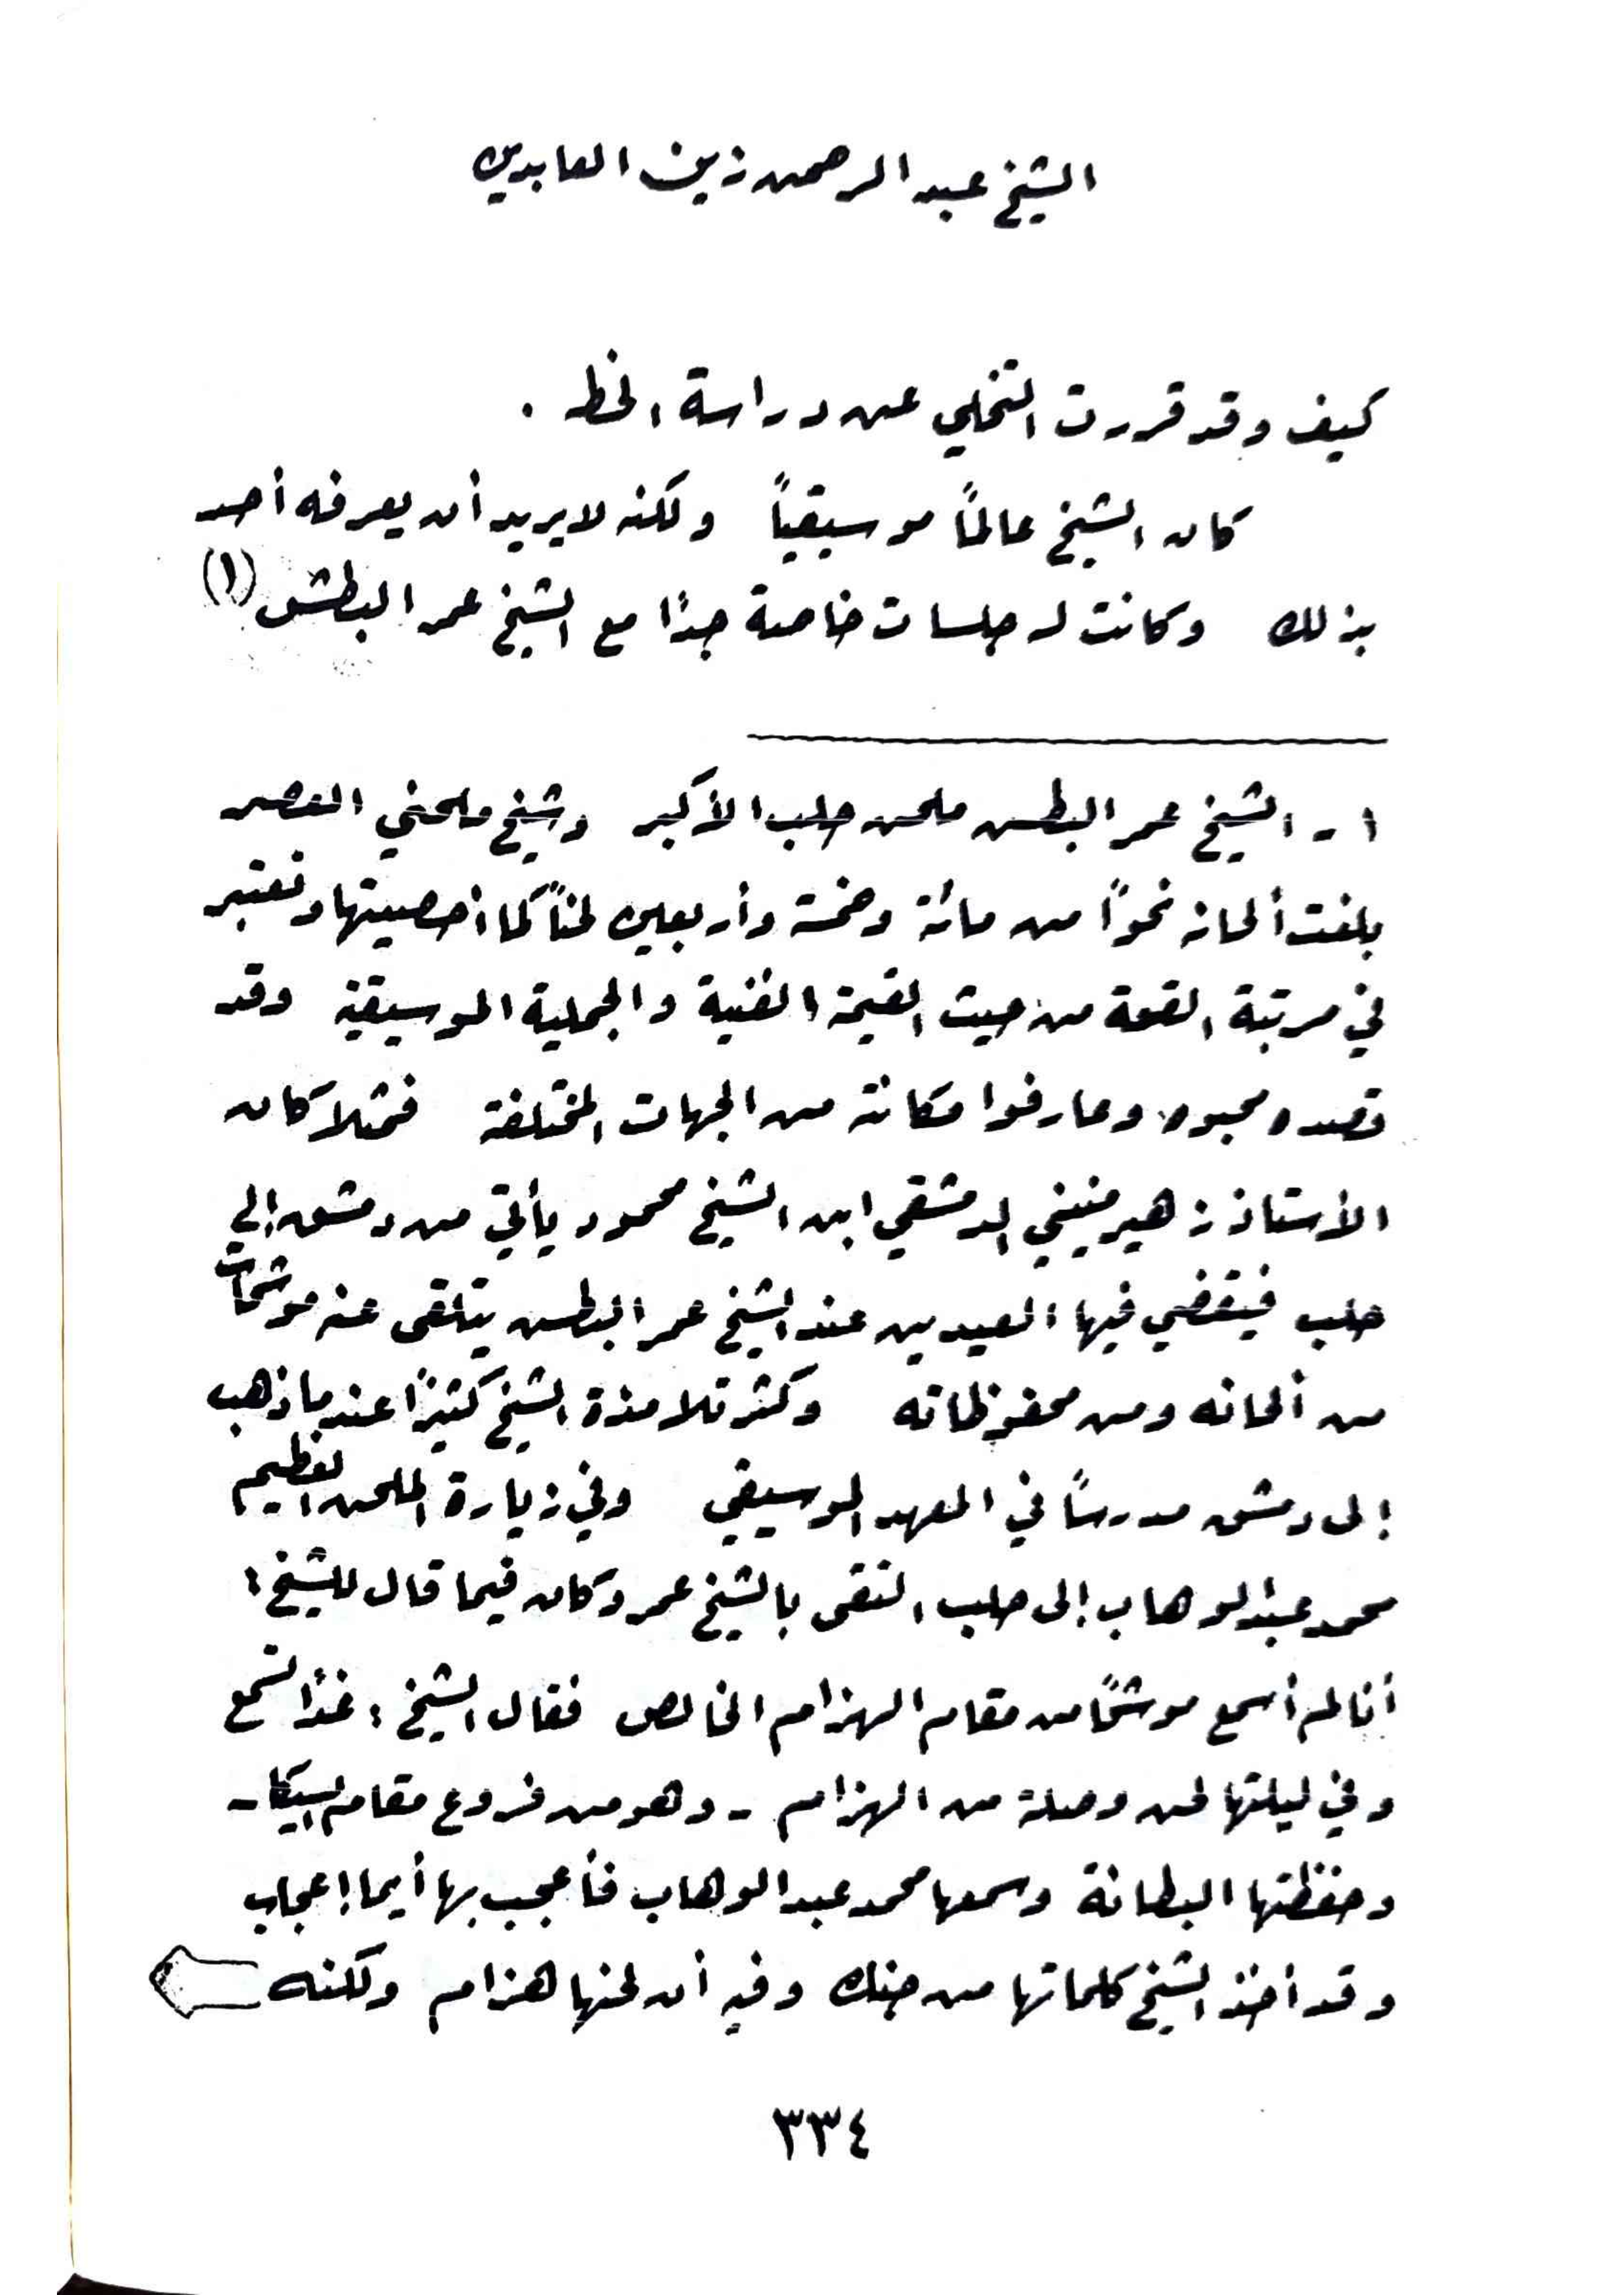 الشيخ عبد الرحمن زين العابدين
كيف وقد قررت التخلي عن دراسة الخط .
كان الشيخ عالماً موسيقياً ولكنه لا يريد أن يعرفه أحد
بذلك وكانت له جلسات خاصة جداً مع الشيخ عمر البطش (١)
١ - الشيخ عمر البطش ملحن حلب الأكبر وشيخ ملحني العصر
بلغت ألحانه نحواً من مائة وخمسة وأربعين لحناً كما أحصيتها وتعتبر
في مرتبة القمة من حيث القيمة الفنية والجملية الموسيقية وقد
قصده محبوه وعارفوا مكانته من الجهات المختلفة فمثلاً كان
الأستاذ زهير منيني الدمشقي ابن الشيخ محمود يأتي من دمشق إلى
حلب فيقضي فيها العيدين عند الشيخ عمر البطش يتلقى عنه موشحات
من ألحانه ومن محفوظاته وكثر تلامذة الشيخ كثيراً عندما ذهب
إلى دمشق مدرساً في المعهد الموسيقي وفي زيارة الملحن العظيم
محمد عبد الوهاب إلى حلب التقى بالشيخ عمر وكان فيما قال للشيخ :
أنا لم أسمع موشحاً من مقام الهزام الخالص فقال الشيخ : غداً تسمع
وفي ليلتها لحن وصلة من الهزام - وهو من فروع مقام السيكا -
وحفظتها البطانة وسمعها محمد عبد الوهاب فأعجب بها أيما إعجاب
وقد أخذ الشيخ كلماتها من جنك وفيه أن لحنها هزام ولكنه
٣٣٤